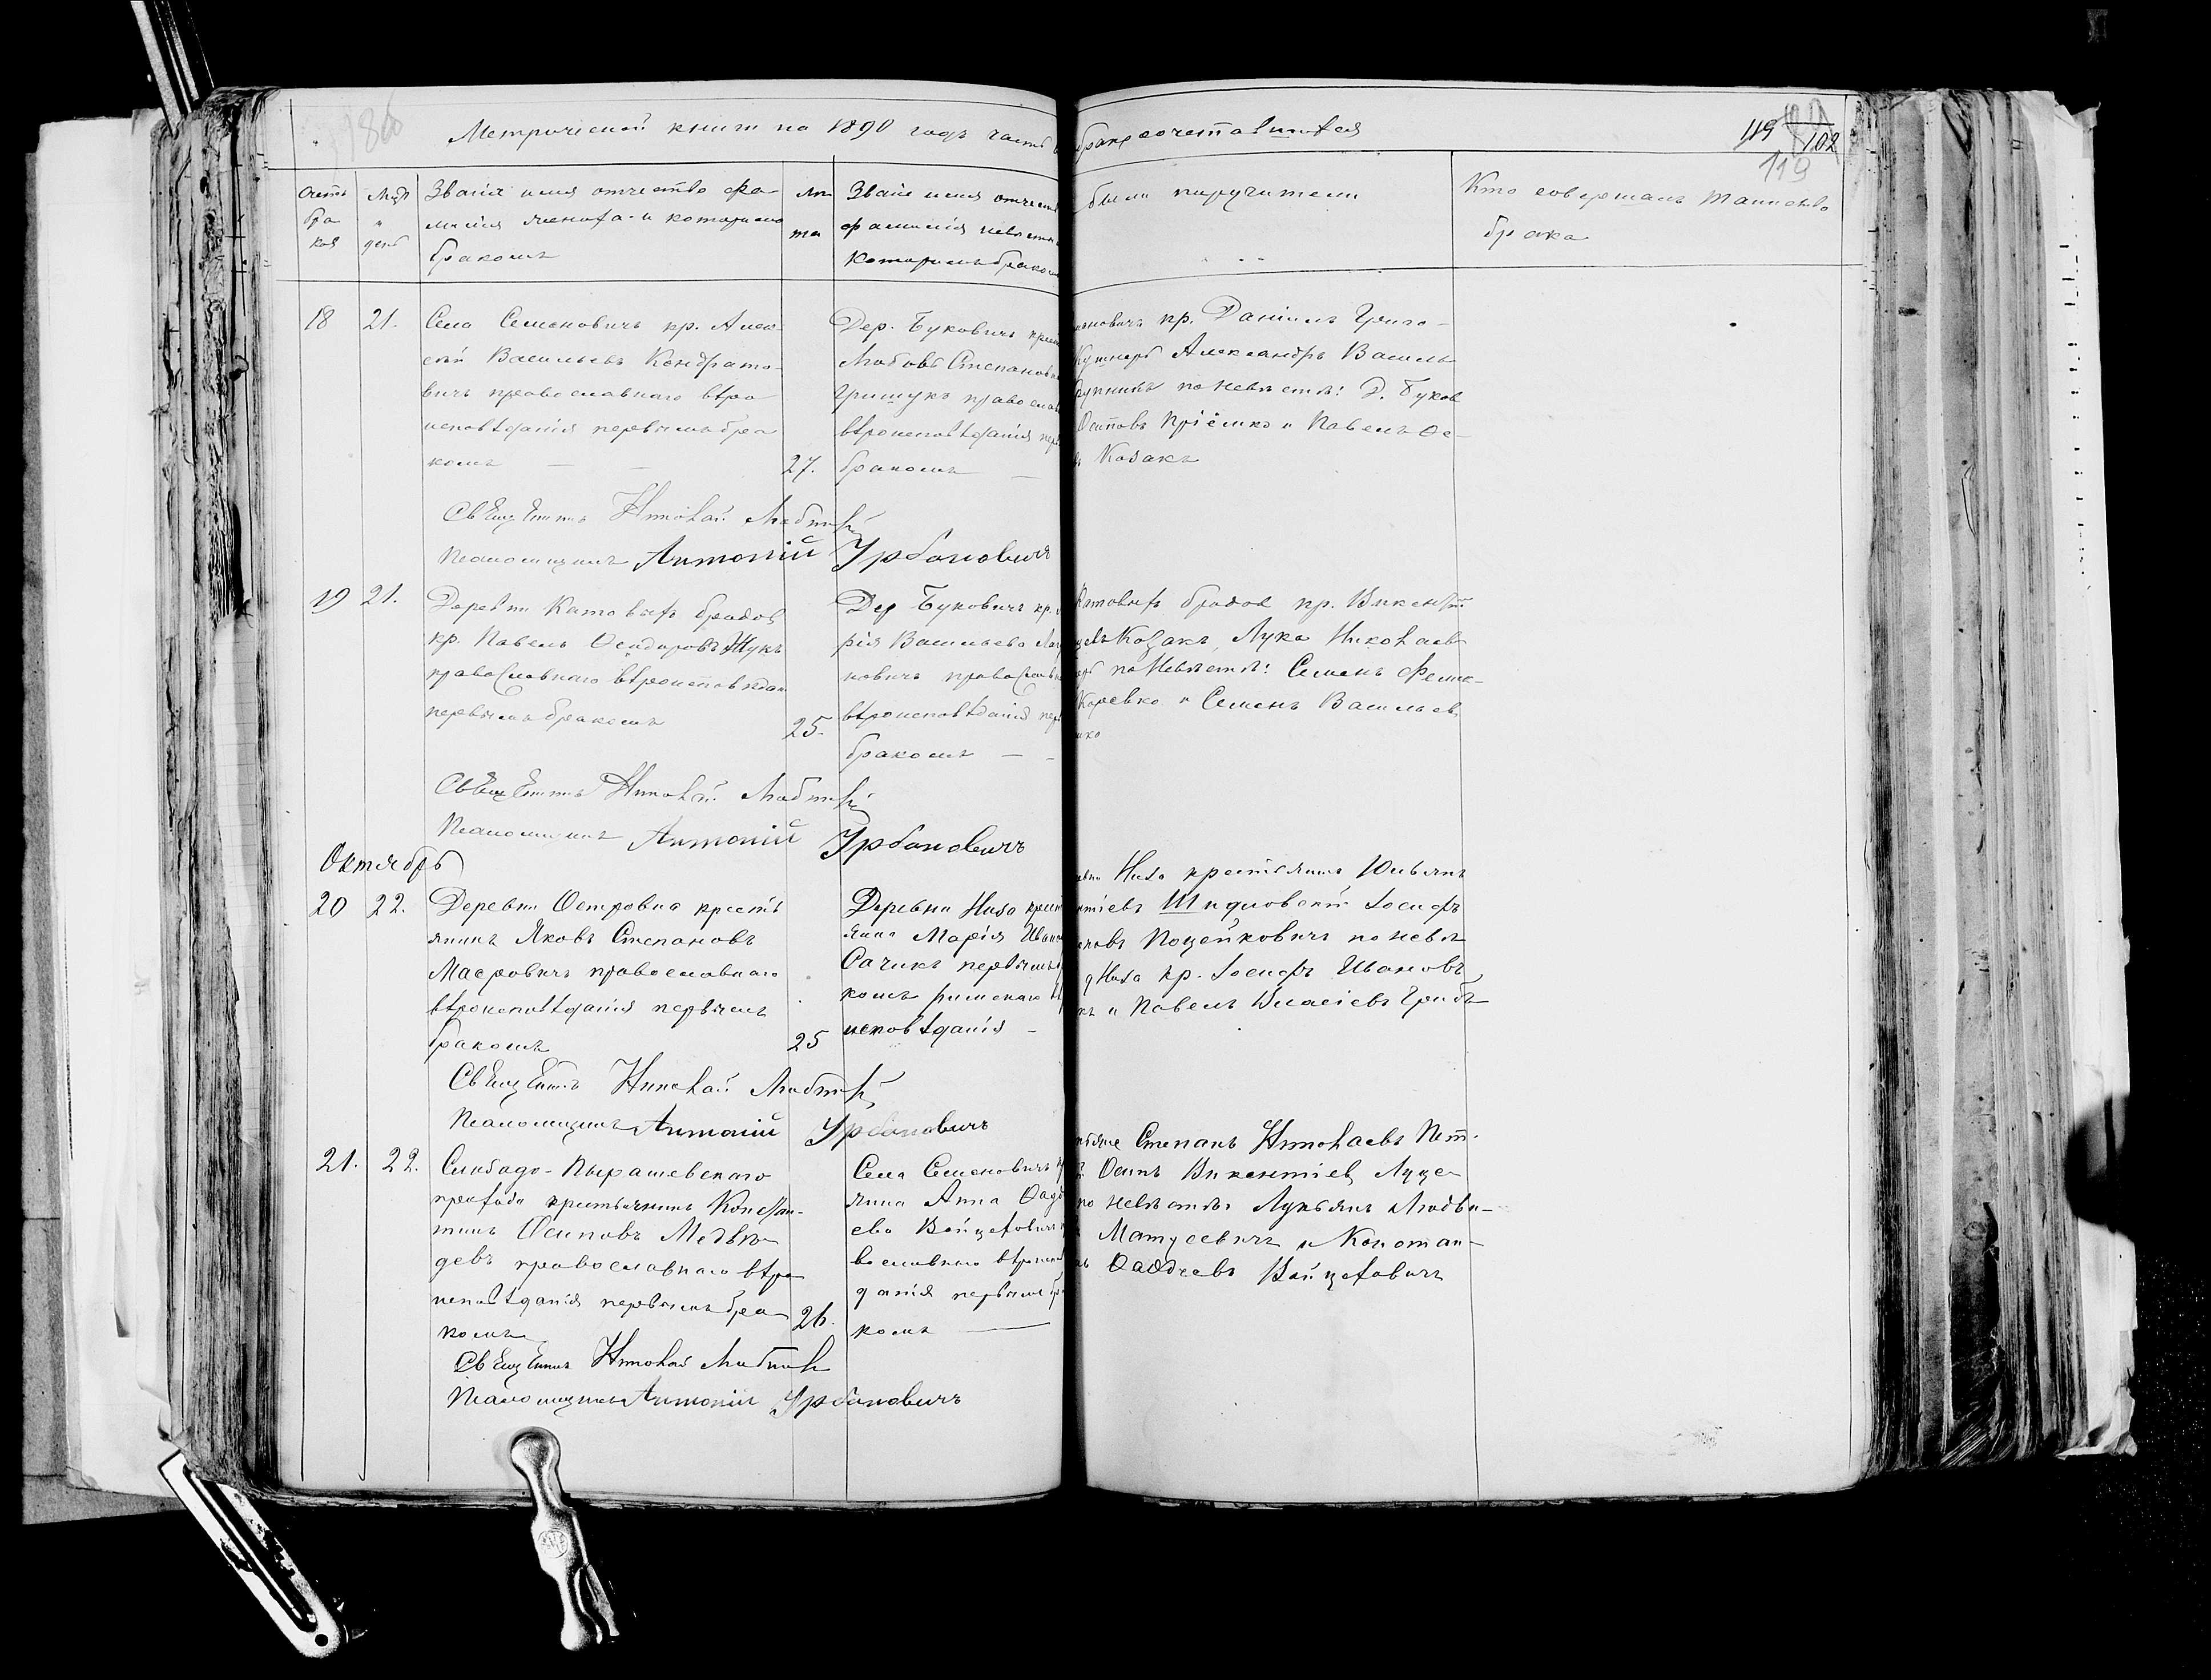 Метрической книги на 1890 годъ часть
бракосочетавшихся
119 102
119
Счетъ браковъ
Мцъ и день
Званіе имя отчество фа-
милія жениха и которымъ
бракомъ
лѣта
Званіе имя отчест
фамилія невѣсты
которымъ бракомъ
были поручители
Кто совершалъ таинство
брака
18 21. Села Семеновичъ кр. Алек-
сѣй Васильевъ Кондрато-
вичъ православнаго вѣро
исповѣданія первымъ бра
комъ
27.
Дер. Буковичъ крест
Любовь Степанова
Грищукъ правосла
вѣроисповѣданія пер
бракомъ
еновичъ кр. Даніилъ Григо-
Кушнеръ Александръ Василь
по невѣстѣ: Д. Буков
Осиповъ Пріёмко и Павелъ Ос-
Козакъ
Священникъ Николай
Псаломщикъ Антоній Урбановичъ
19 21. Деревни Катовыхъ бродов
кр. Павелъ Жукъ
православнаго вѣроисповѣдан
первымъ бракомъ
25.
Дер Буковичъ кр.
рія Васильева
новичъ православн
вѣроисповѣданія пер
бракомъ
Катовыхъ бродов кр. Викентій
Козакъ, Лука Николаев
по невѣстѣ: Семенъ
Коревко и Семенъ Васильев
Священникъ Николай
Псаломщикъ Антоній Урбановичъ
Октябрь
20 22. Деревни Островка кресть
янинъ Яковъ Степановъ
православнаго
вѣроисповѣданія первымъ
бракомъ
25
Деревни Низа крест
янка Марія Ивано
Сачикъ первымъ
комъ римскаго
исповѣданія
Низа крестьянинъ Юльянъ
Шидловскій Іосифъ
Поцейковичъ по невѣ
д Низа кр. Іосифъ Ивановъ
и Павелъ Власіевъ Грибъ
Священникъ Николай
Псаломщикъ Антоній Урбановичъ
21. 22. Слободо-Пырашевскаго
прихода крестьянинъ Констан-
тинъ Осиповъ Медвѣ
девъ православнаго вѣро
исповѣданія первымъ бра
комъ
26.
Села Семеновичъ
янка Анна Ѳаде
ева Войцеховичъ
вославнаго вѣроиспов
данія первымъ
комъ
Степанъ Николаевъ Пет-
Осипъ Викентіев
по невѣстѣ: Лукьянъ Людви-
Матусевичъ и Констан-
Ѳаддеевъ Войцеховичъ
Священникъ Николай
Псаломщикъ Антоній Урбановичъ